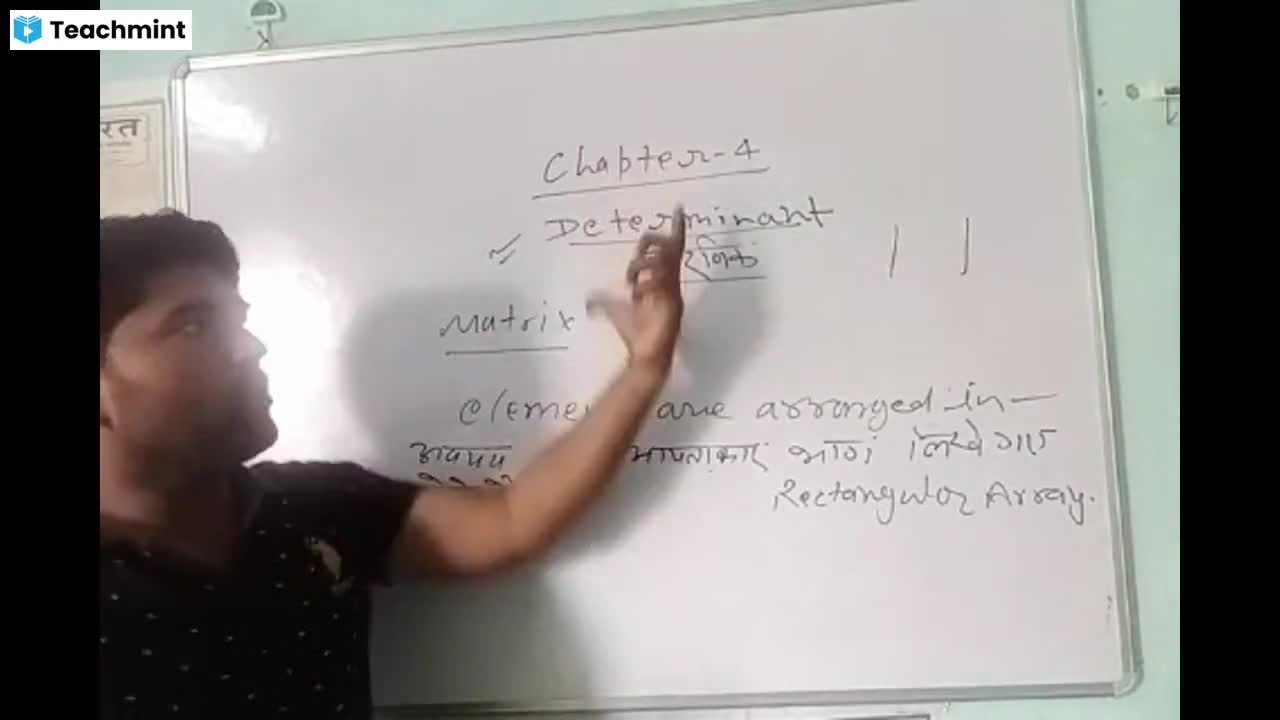 Teachmint
रत
Chapter-4
Determinant
रणिक
Matrix
are arranged in
अवयव आयताकार लिखे गए
Rectangular Array.